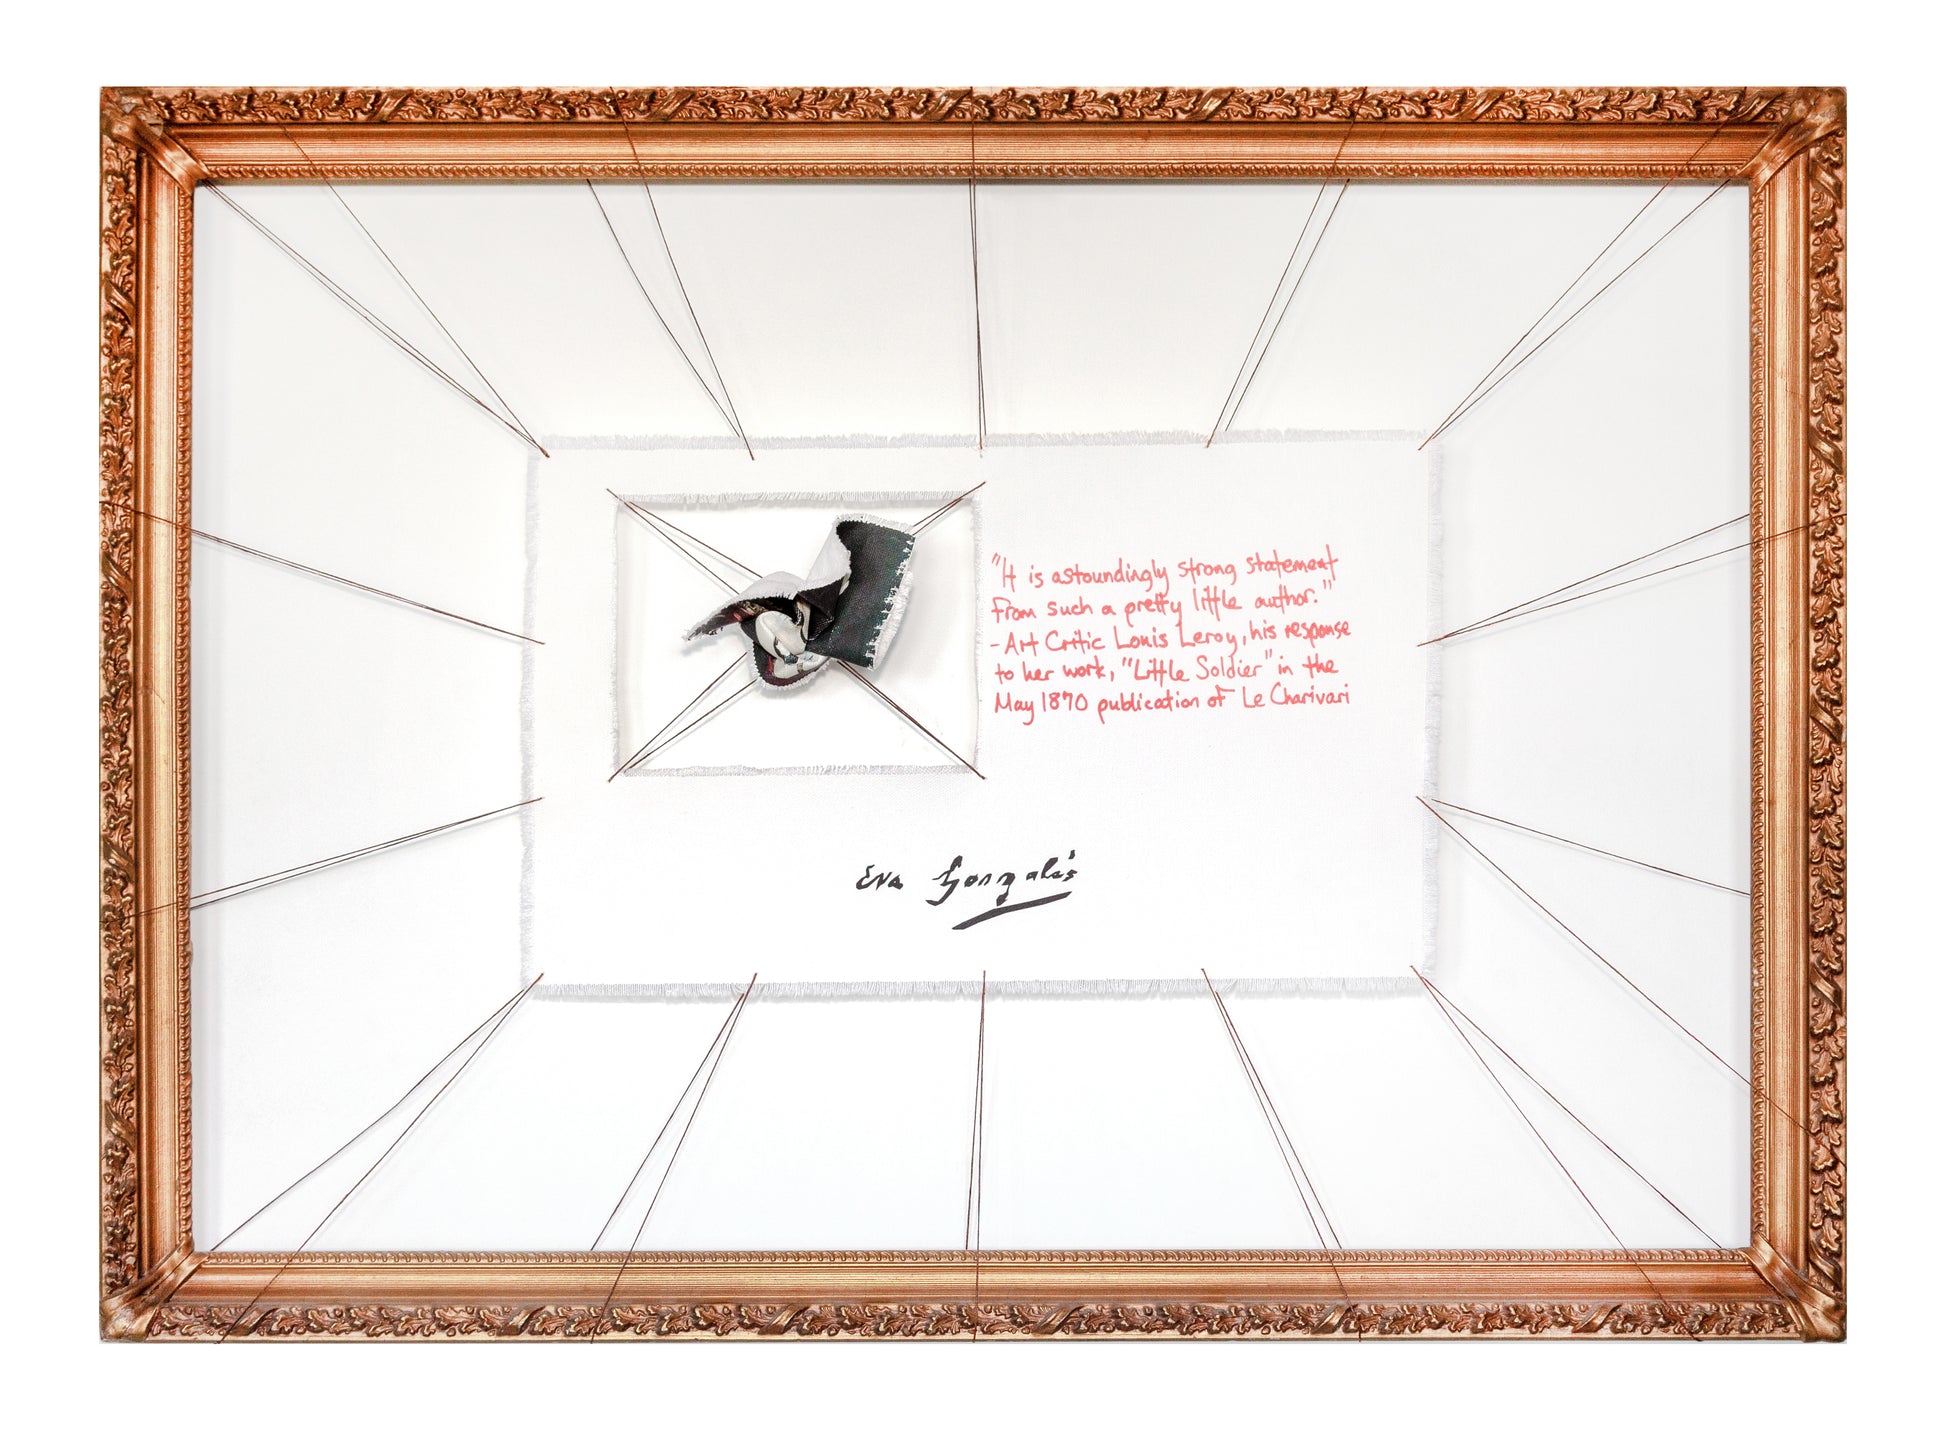 "It is astoundingly strong statement
from such a pretty little author."
- Art Critic Louis Leroy, his response
to her work, "Little Soldier" in the
May 1870 publication of Le Charivari
Eva Gonzalès